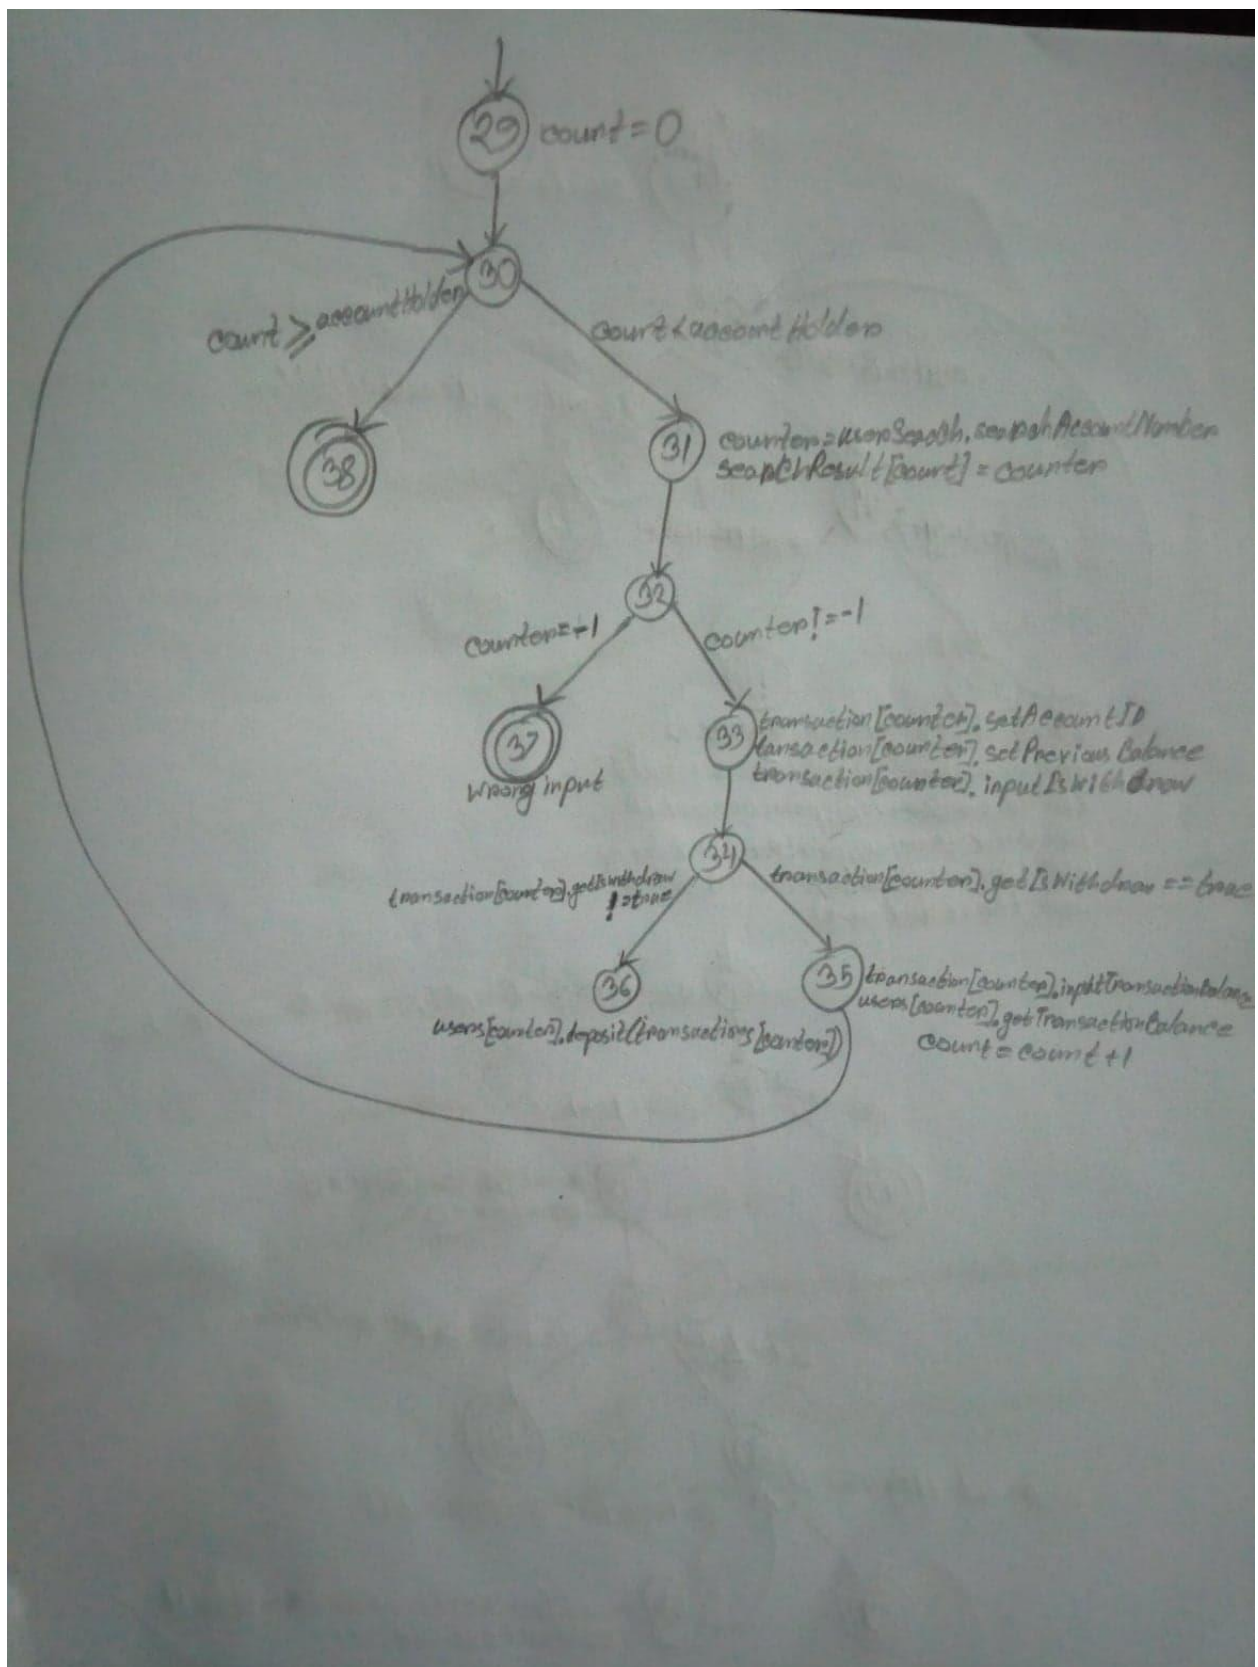 29 count = 0
30
count ≥ accountHolder
count < accountHolder
38
31 counter = userSearch.searchAccountNumber
searchResult[count] = counter
32
counter = -1
counter != -1
37
wrong input
33 transaction[counter].setAccountID
tansaction[counter].setPrevious Balance
transaction[counter].inputIsWithdraw
34
transaction[counter].getIsWithdraw
!=true
transaction[counter].getIsWithdraw == true
36
users[counter].deposit(transactions[counter])
35 transaction[counter].inputTransactionBalance
users[counter].getTransactionBalance
count = count +1